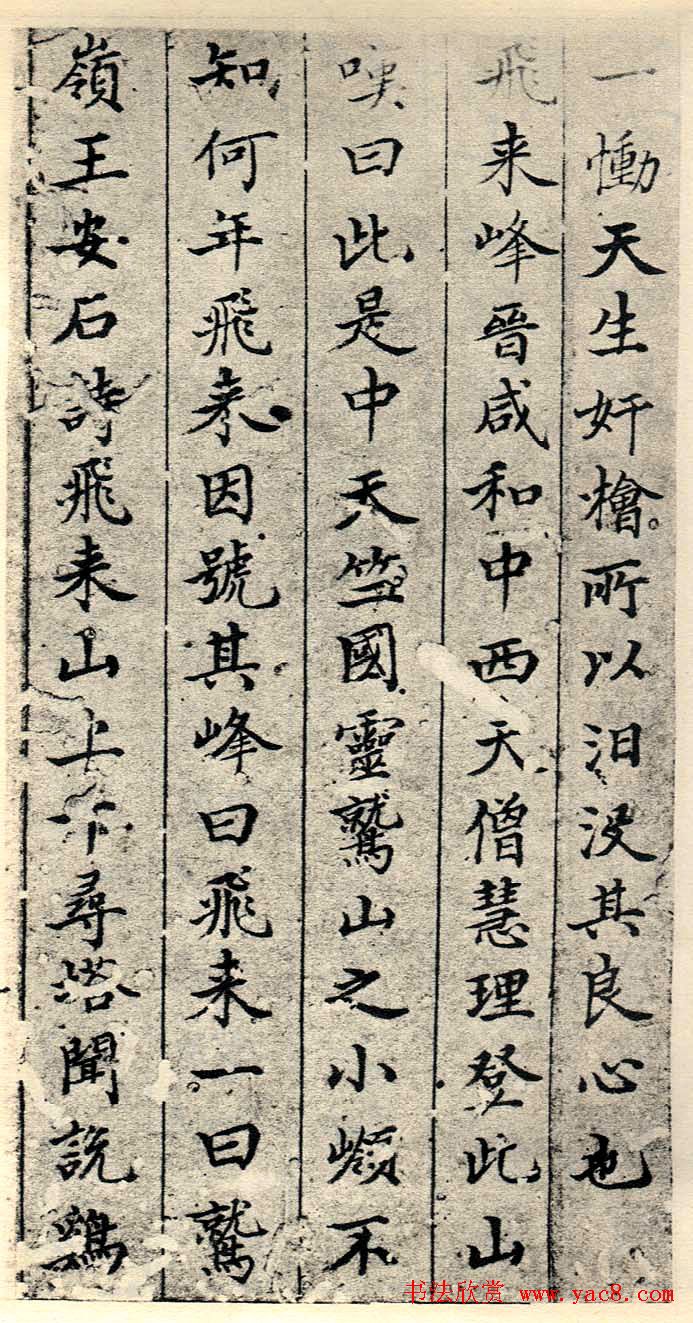 一慟天生奸檜所以汨没其良心也
飛来峰晉咸和中西天僧慧理登此山
嘆曰此是中天竺國靈鷲山之小嶺不
知何年飛来因號其峰曰飛来一曰鷲
嶺王安石詩飛来山上千尋塔聞説鷄
书法欣赏 www.yac8.com